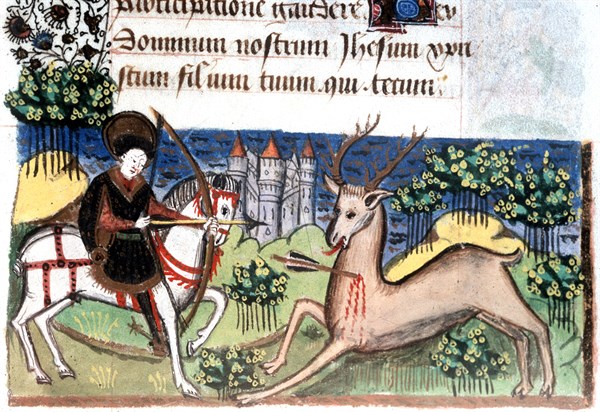 participatione gaudere. Per
dominum nostrum Jhesum xpri
stum filium tuum. qui tecum.